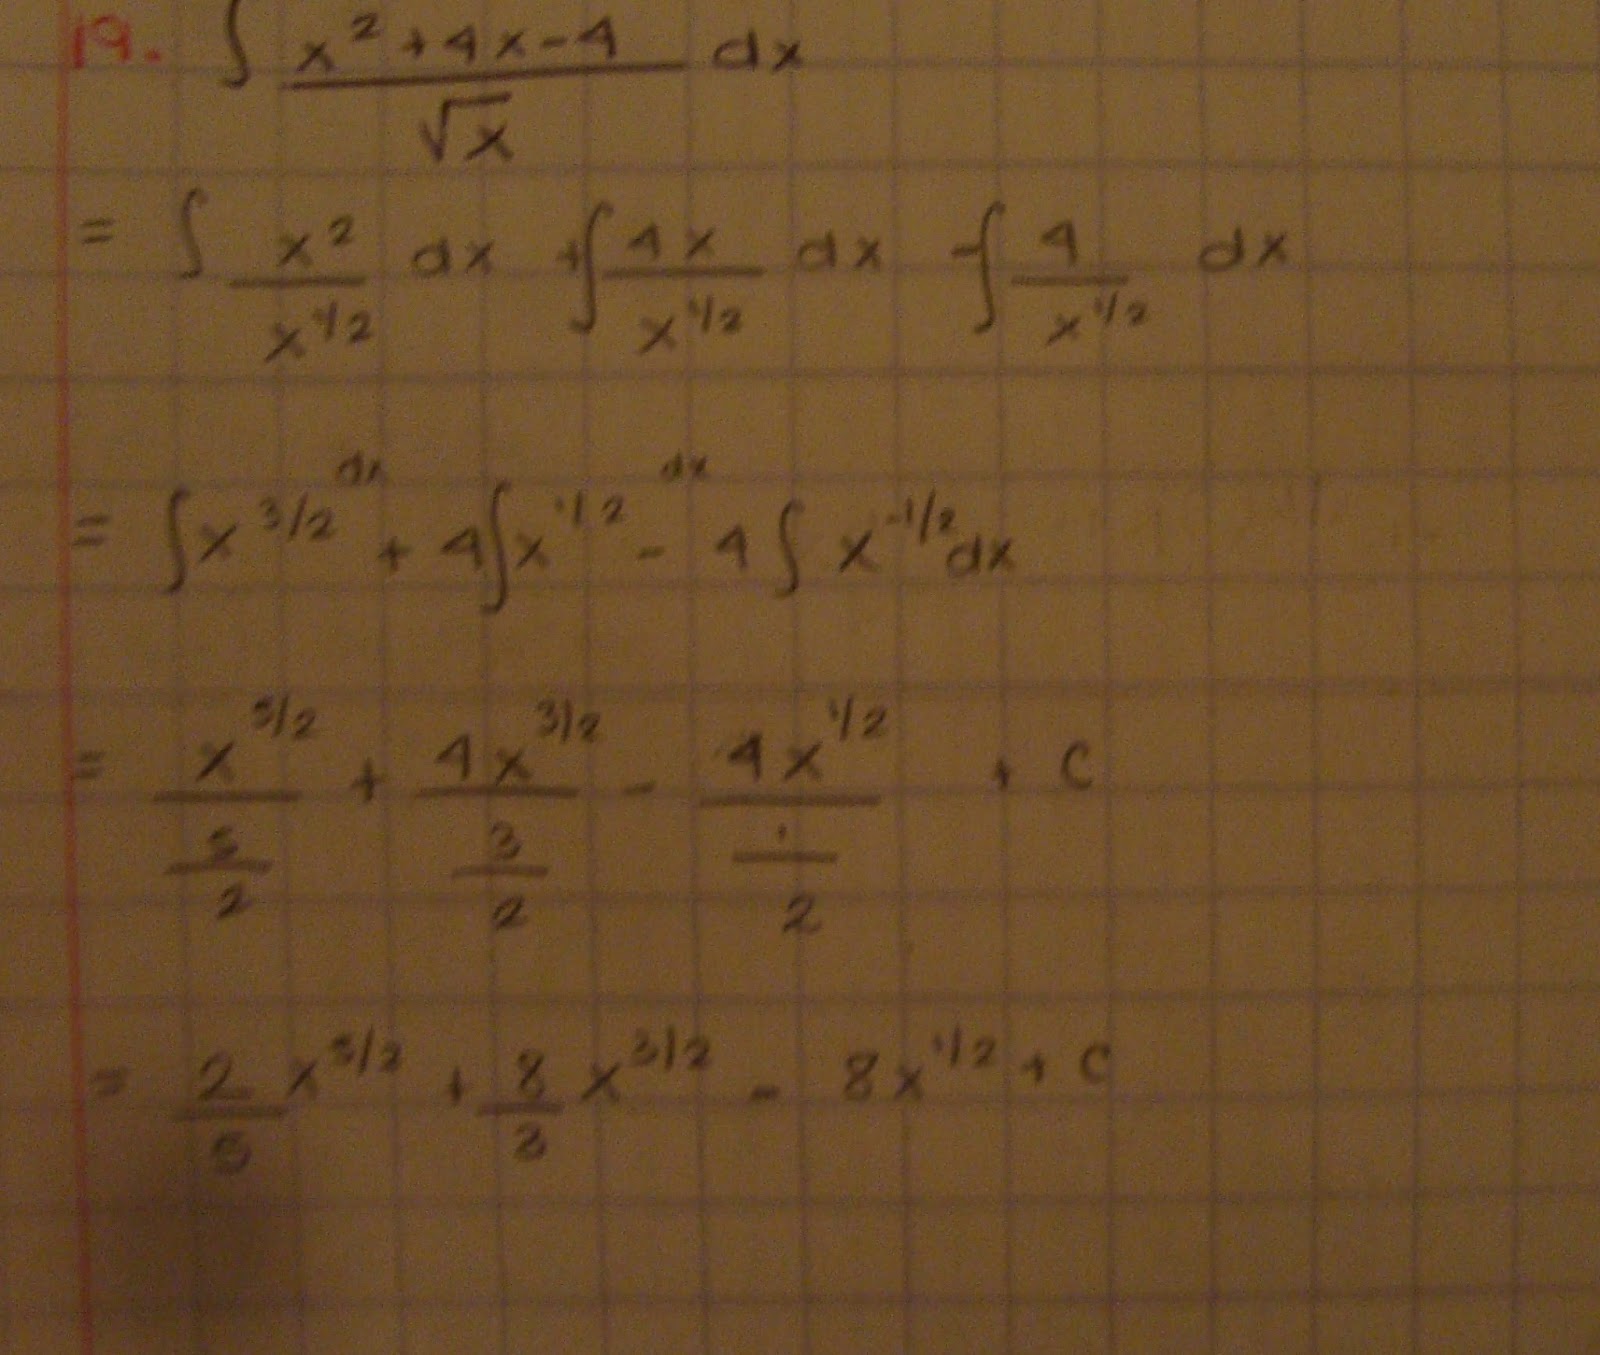 19. ∫ (x² + 4x - 4)/√x dx
= ∫ x²/x^(1/2) dx + ∫ 4x/x^(1/2) dx - ∫ 4/x^(1/2) dx
= ∫ x^(3/2) dx + 4 ∫ x^(1/2) dx - 4 ∫ x^(-1/2) dx
= x^(5/2)/(5/2) + 4x^(3/2)/(3/2) - 4x^(1/2)/(1/2) + C
= 2/5 x^(5/2) + 8/3 x^(3/2) - 8x^(1/2) + C